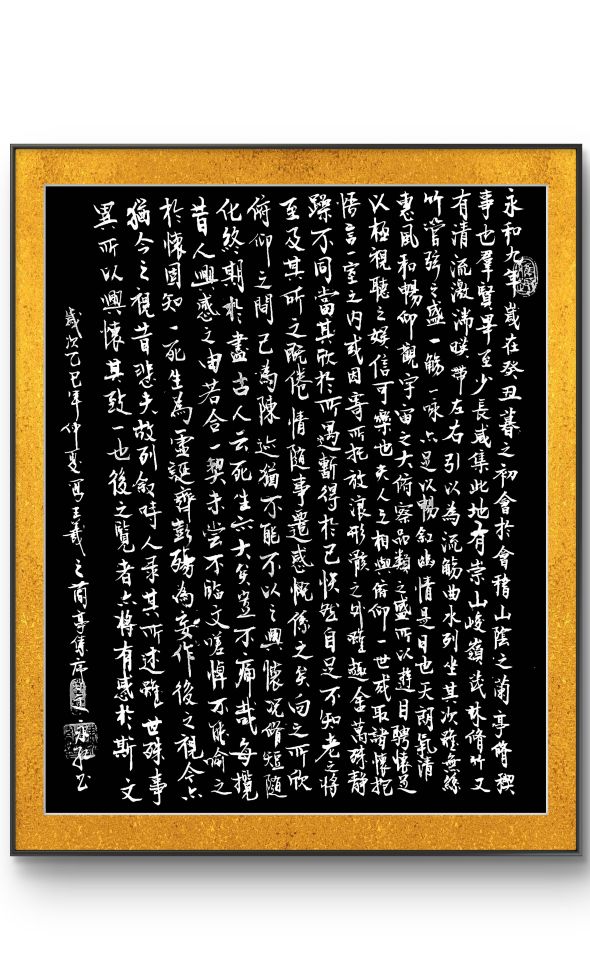 永和九年歲在癸丑暮之初會於會稽山陰之蘭亭脩禊
事也羣賢畢至少長咸集此地有崇山峻嶺茂林脩竹又
有清流激湍暎帶左右引以為流觴曲水列坐其次雖無絲
竹管弦之盛一觴一咏亦足以暢叙幽情是日也天朗氣清
惠風和暢仰觀宇宙之大俯察品類之盛所以遊目騁懷足
以極視聽之娛信可樂也夫人之相與俯仰一世或取諸懷抱
悟言一室之内或因寄所托放浪形骸之外雖趣舍萬殊靜
躁不同當其欣於所遇暫得於己快然自足不知老之將
至及其所之既倦情隨事遷感慨係之矣向之所欣
俯仰之間已為陳迹猶不能不以之興懷況脩短隨
化終期於盡古人云死生亦大矣豈不痛哉每攬
昔人興感之由若合一契未嘗不臨文嗟悼不能喻之
於懷固知一死生為虛誕齊彭殤為妄作後之視今亦
猶今之視昔悲夫故列叙時人录其所述雖世殊事
異所以興懷其致一也後之覽者亦將有感於斯文
歲次乙巳年仲夏寫王羲之蘭亭集序